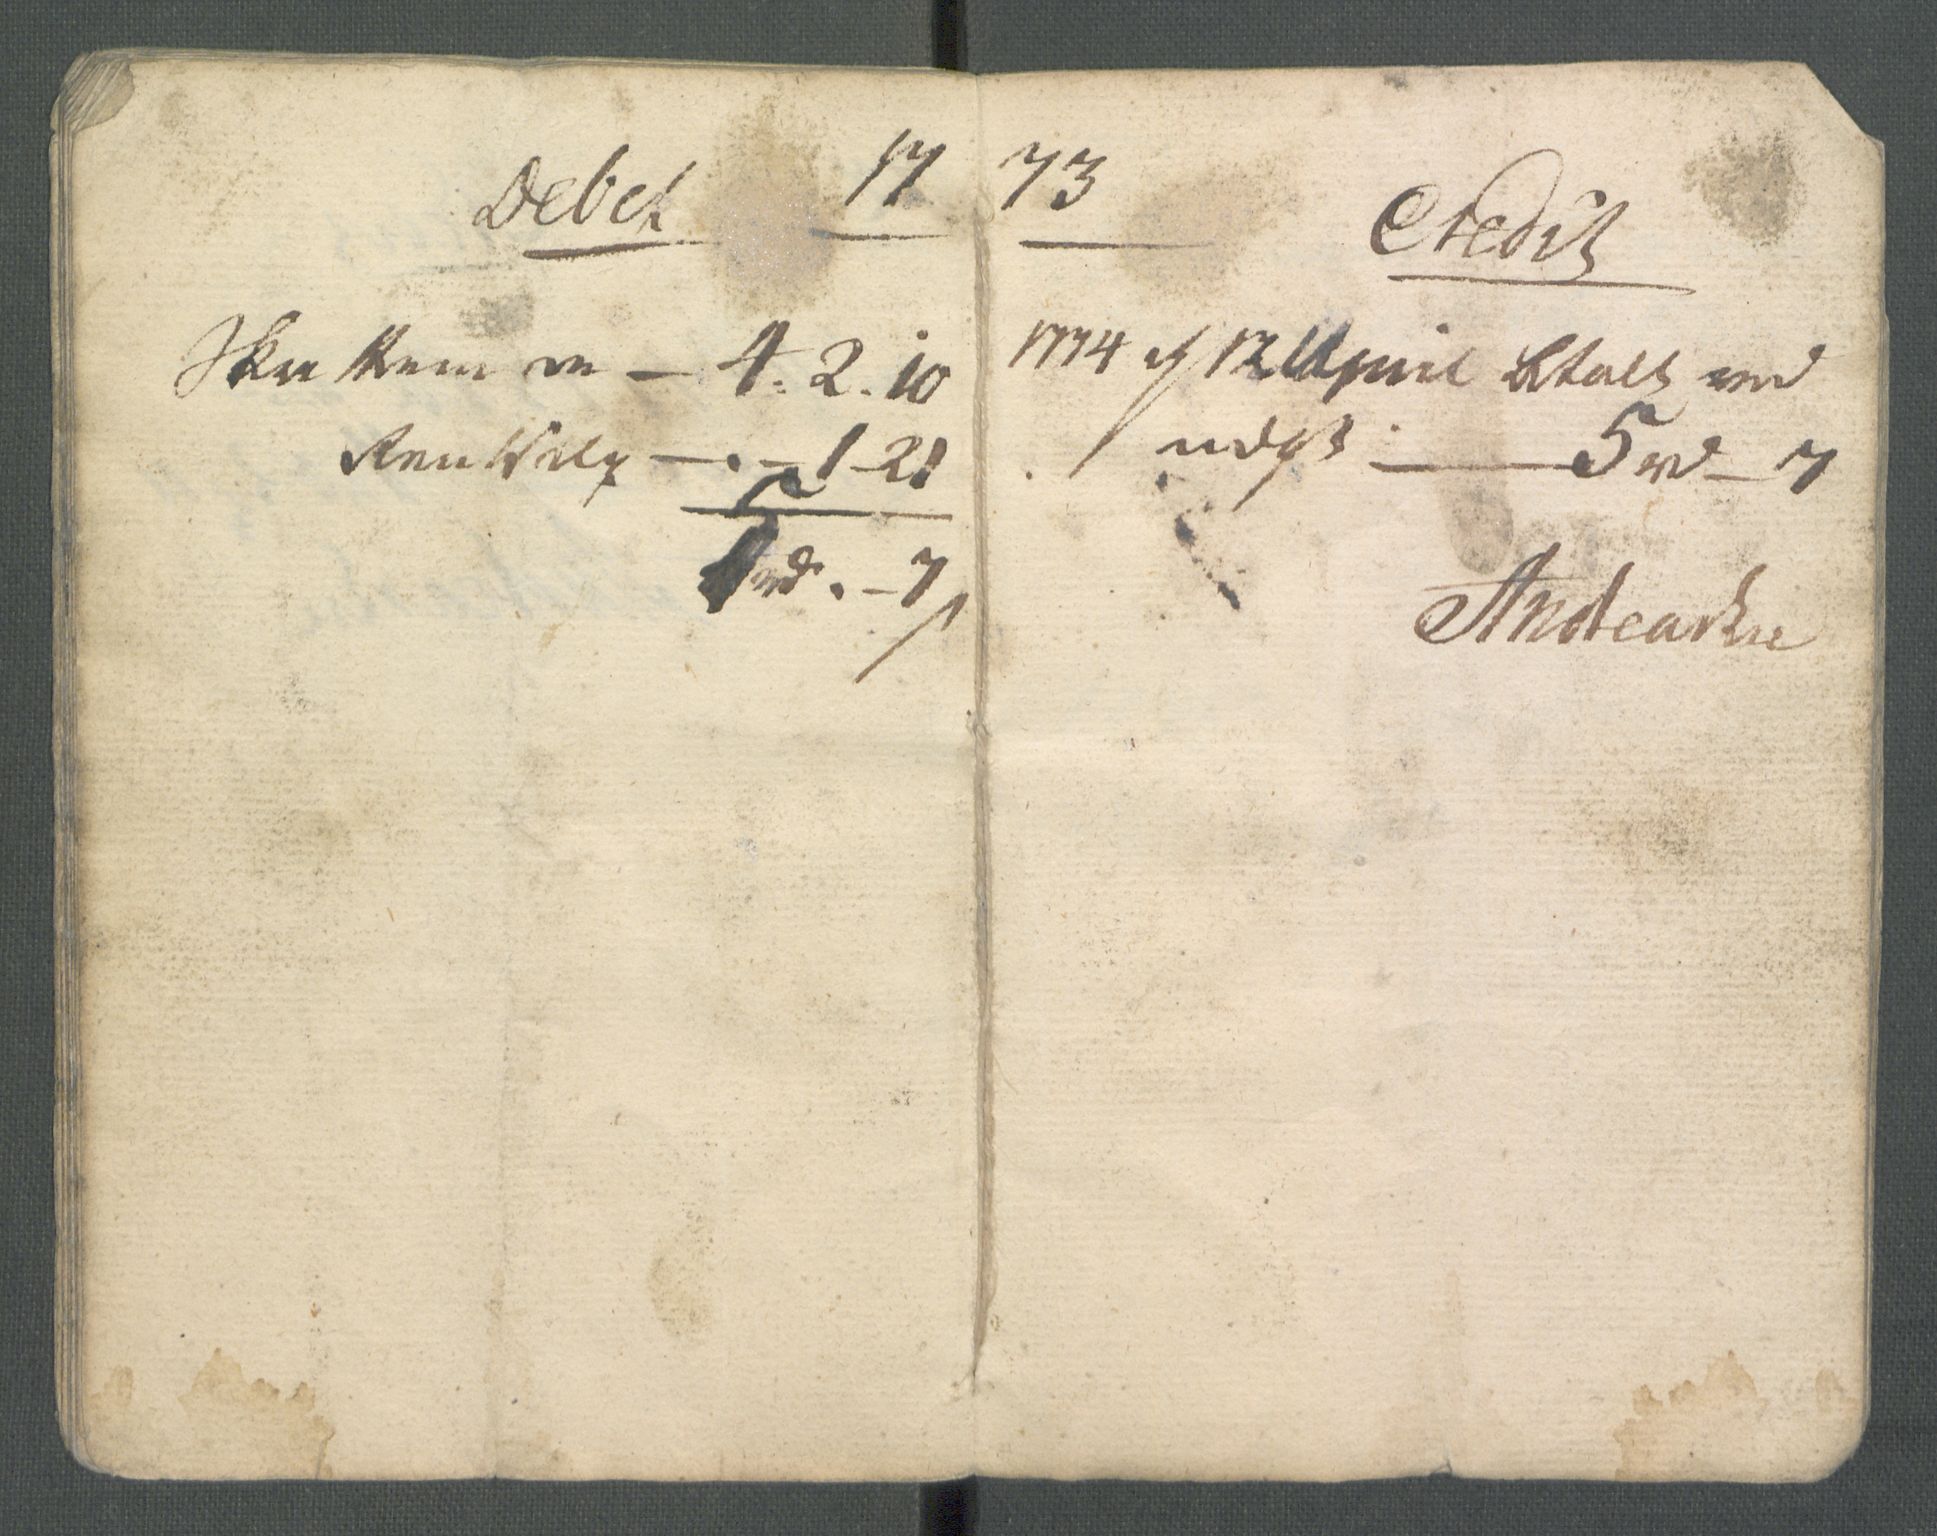 Debet 17
Skatterne er — 4. 2. 10
— . — 1 - 21
5 rd . — 7
73 Credit
1774 d 12 April betalt med
5 rd — 7